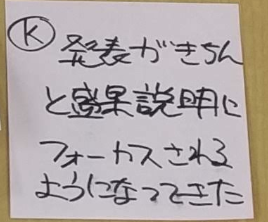 Ⓚ 発表がきちん
と成果説明に
フォーカスされる
ようになってきた